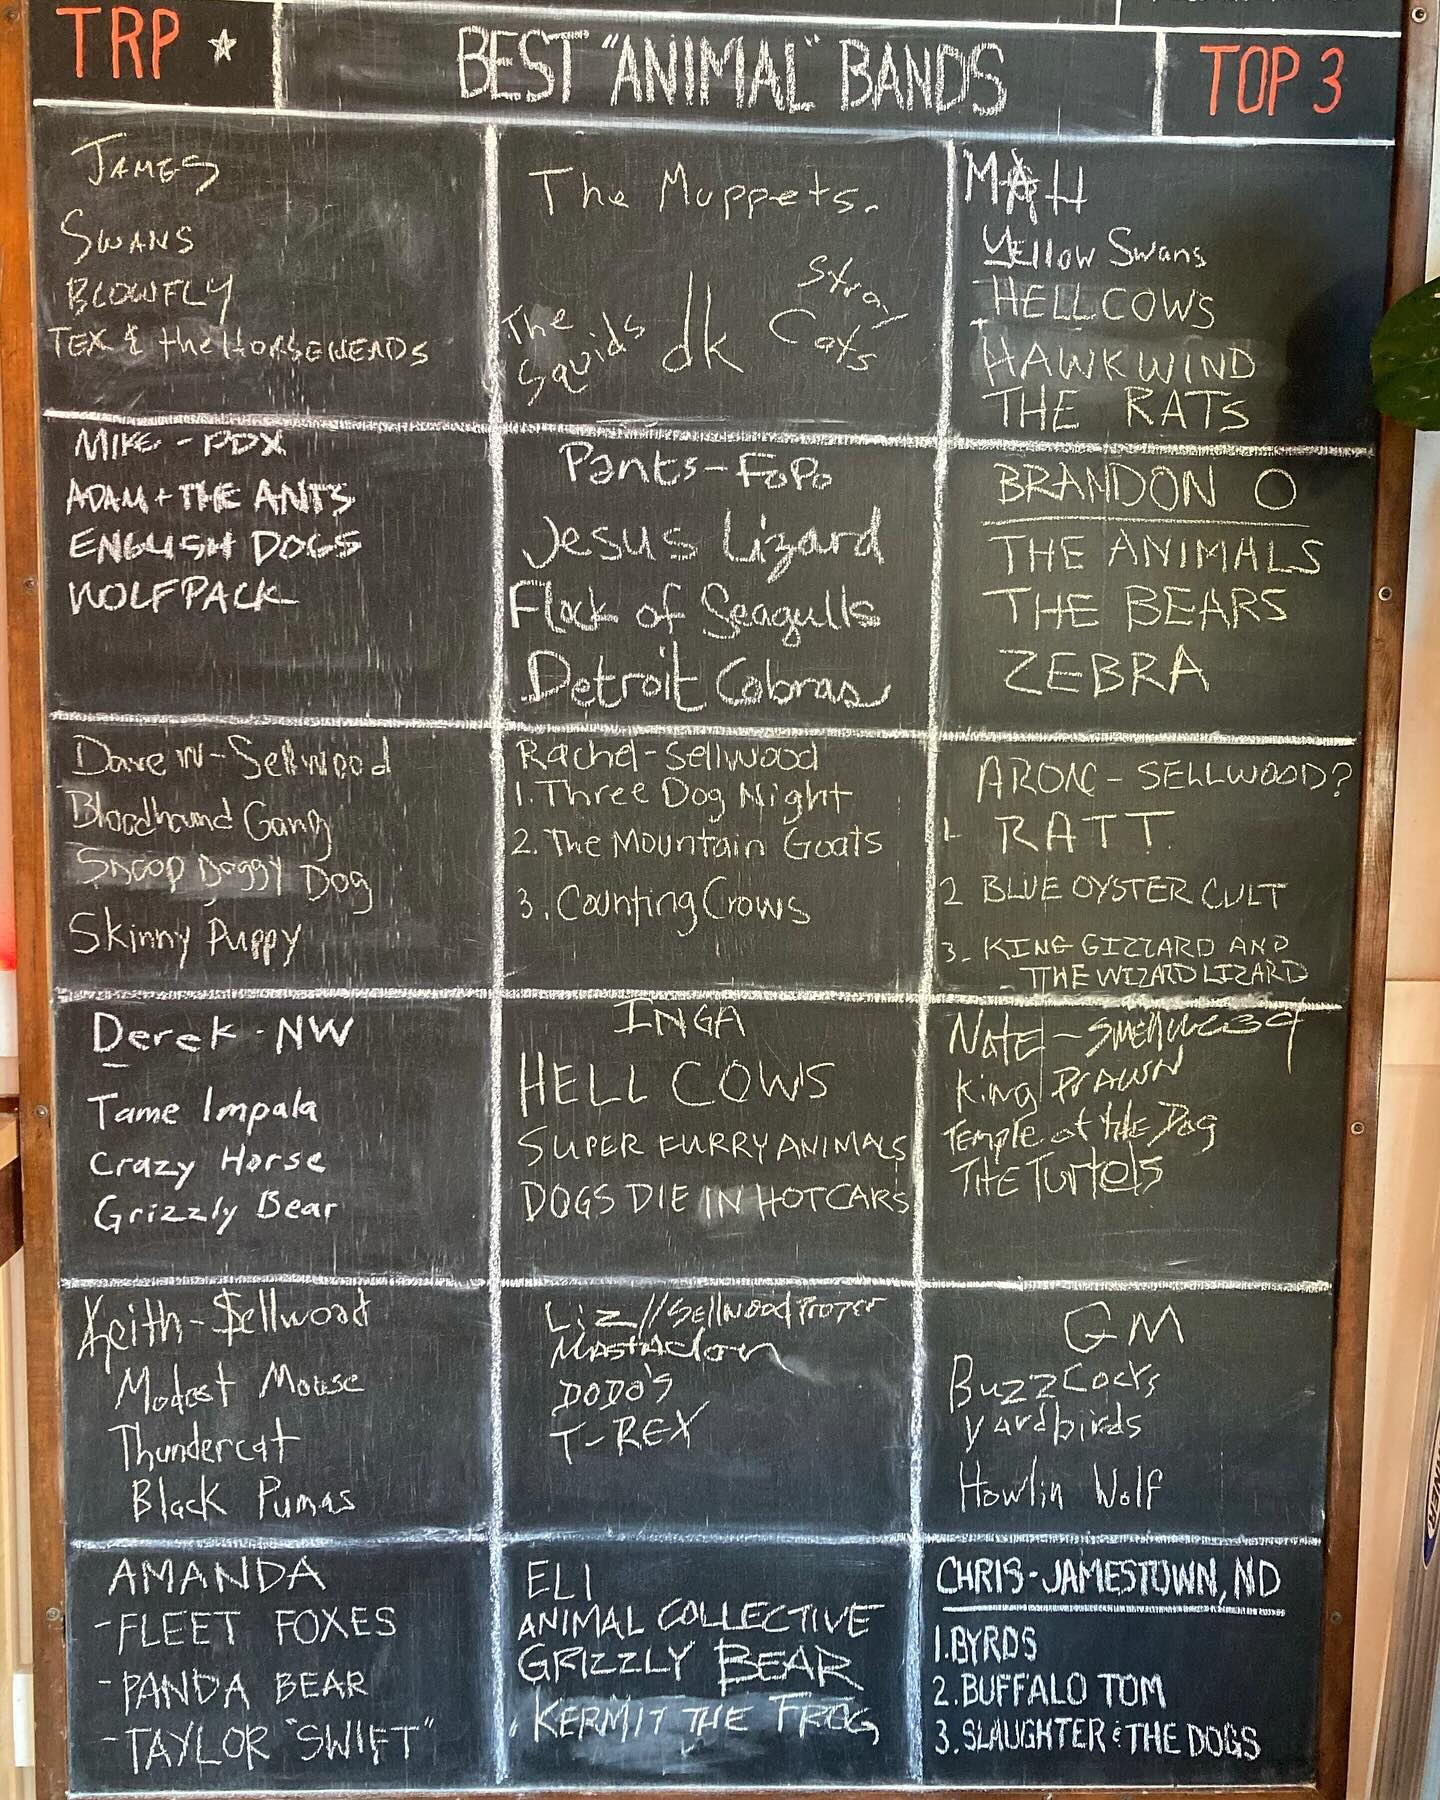 TRP ★
BEST "ANIMAL" BANDS
TOP 3
JAMES
SWANS
BLOWFLY
TEX & the HORSEHEADS
The Muppets.
The Squids
dk
Stray Cats
MAH
Yellow Swans
HELLCOWS
HAWKWIND
THE RATS
MIKE - PDX
ADAM + THE ANTS
ENGLISH DOGS
WOLFPACK
Pants-FoPo
Jesus Lizard
Flock of Seagulls
Detroit Cobras
BRANDON O
THE ANIMALS
THE BEARS
ZEBRA
Dave W-Sellwood
Bloodhound Gang
Snoop Doggy Dog
Skinny Puppy
Rachel-Sellwood
1. Three Dog Night
2. The Mountain Goats
3. Counting Crows
ARON - SELLWOOD?
1- RATT
2 BLUE OYSTER CULT
3- KING GIZZARD AND
- THE WIZARD LIZARD
Derek - NW
Tame Impala
Crazy Horse
Grizzly Bear
INGA
HELL COWS
SUPER FURRY ANIMALS
DOGS DIE IN HOT CARS
Nate -
King PRAWN
Temple of the Dog
THE Turtels
Keith-$ellwood
Modest Mouse
Thundercat
Black Pumas
Liz//Sellwood Proper
Mastadon
DODO'S
T-REX
GM
BuzzCocks
Yardbirds
Howlin Wolf
AMANDA
-FLEET FOXES
-PANDA BEAR
-TAYLOR "SWIFT"
ELI
ANIMAL COLLECTIVE
GRIZZLY BEAR
KERMIT THE FROG
CHRIS-JAMESTOWN, ND
1. BYRDS
2. BUFFALO TOM
3. SLAUGHTER & THE DOGS